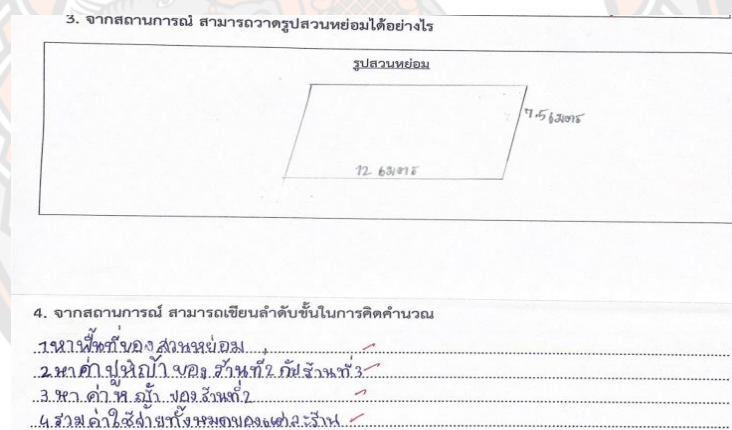 3. จากสถานการณ์ สามารถวาดรูปสวนหย่อมได้อย่างไร
รูปสวนหย่อม
7.5 เมตร
12 เมตร
4. จากสถานการณ์ สามารถเขียนลำดับขั้นในการคิดคำนวณ
1 หาพื้นที่ของสวนหย่อม
2 หาค่าปูหญ้าของร้านที่2 กับร้านที่3
3 หาค่า หญ้า ของร้านที่2
4 รวมค่าใช้จ่ายทั้งหมดของแต่ละร้าน